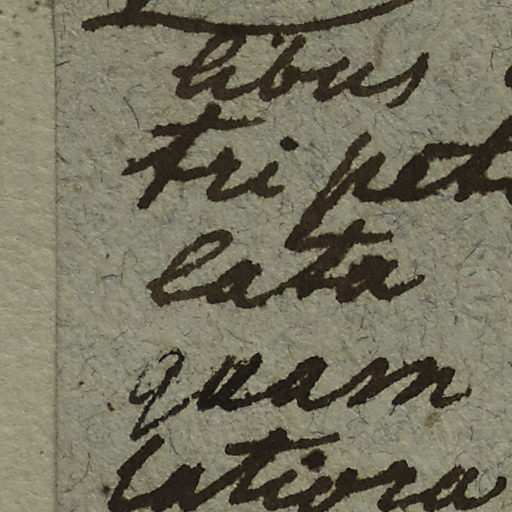 libus
tripet
lata
quam
latiora